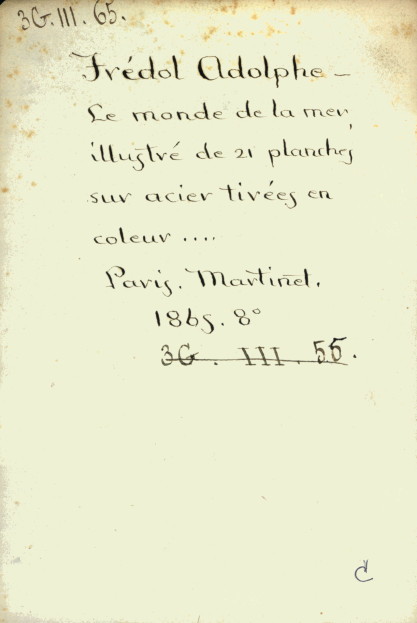 3G.III.65.
Frédol Adolphe -
Le monde de la mer,
illustré de 21 planches
sur acier tirées en
coleur ....
Paris. Martinet.
1865. 8°
3G. III. 55.